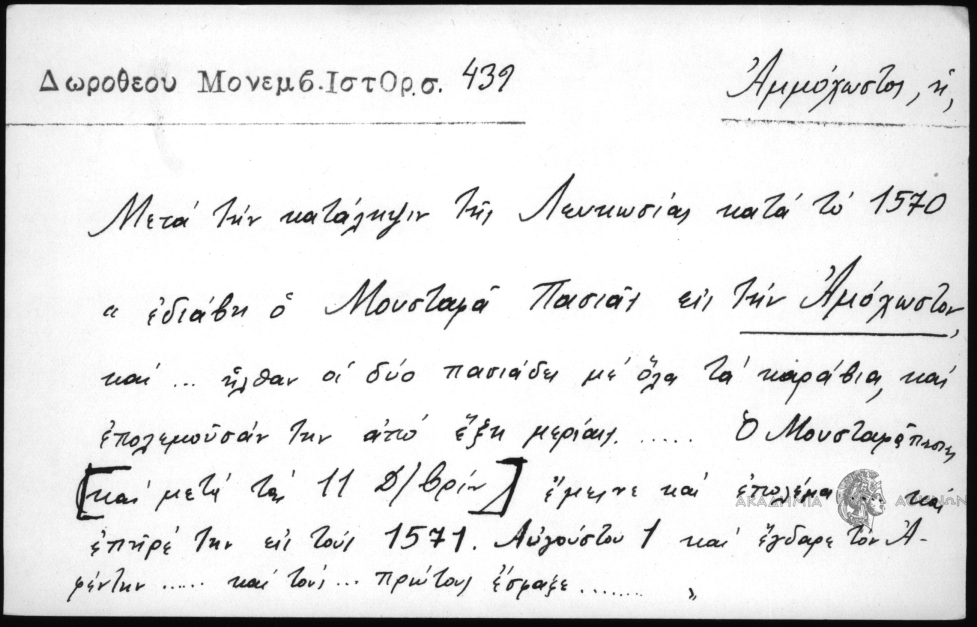 Δωροθεου Μονεμβ.ΙστΟρ.σ. 439
Ἀμμόχωστος, ἡ,
Μετά τήν κατάληψιν τῆς Λευκωσίας κατά τό 1570
" ἐδιάβη ὁ Μουσταφᾶ Πασιᾶς εἰς τήν Ἀμόχωστον,
καί ... ἦλθαν οἱ δύο πασιάδες μέ ὅλα τά καράβια, καί
ἐπολεμοῦσάν την ἀπό ἕξη μερίαις. ..... Ὁ Μουσταφᾶπασιᾶς
[καί μετά τάς 11 Δ/βρίου] ἔμεινε καί ἐπολέμα καί
ἐπῆρέ την εἰς τούς 1571. Αὐγούστου 1 καί ἔγδαρε τόν Ἀ-
φέντην ..... καί τούς ... πρώτους ἔσφαξε ....... "
ΑΚΑΔΗΜΙΑ ΑΘΗΝΩΝ